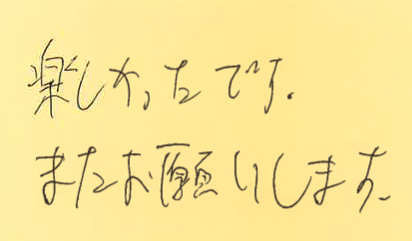 楽しかったです.
またお願いします.